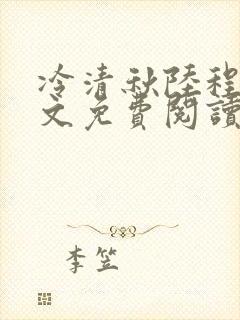 冷清秋陸程
文免費閱讀
李笠